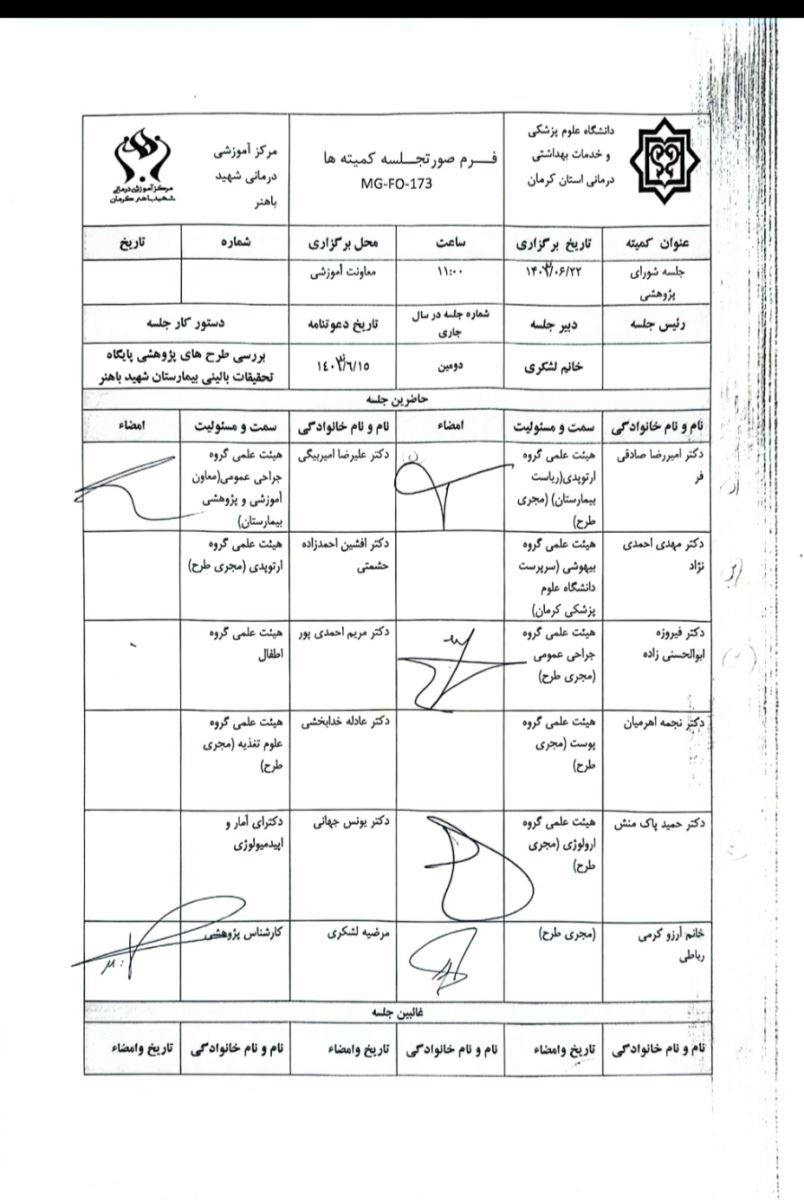 دانشگاه علوم پزشکی
و خدمات بهداشتی
درمانی استان کرمان
فـــرم صورتجـلـسه کمیته ها
MG-FO-173
مرکز آموزشی
درمانی شهید
باهنر
مرکز آموزش درمانی
شهید باهنر کرمان
عنوان کمیته تاریخ برگزاری ساعت محل برگزاری شماره تاریخ
جلسه شورای ۱۴۰۳/۰۶/۲۲ ۱۱:۰۰ معاونت آموزشی
پژوهشی
رئیس جلسه دبیر جلسه شماره جلسه در سال تاریخ دعوتنامه دستور کار جلسه
جاری
خانم لشکری دومین ۱٤۰۳/٦/۱٥ بررسی طرح های پژوهشی پایگاه
تحقیقات بالینی بیمارستان شهید باهنر
حاضرین جلسه
نام و نام خانوادگی سمت و مسئولیت امضاء نام و نام خانوادگی سمت و مسئولیت امضاء
دکتر امیررضا صادقی هیئت علمی گروه دکتر علیرضا امیربیگی هیئت علمی گروه
فر ارتوپدی(ریاست جراحی عمومی(معاون
بیمارستان) (مجری آموزشی و پژوهشی
طرح) بیمارستان)
دکتر مهدی احمدی هیئت علمی گروه دکتر افشین احمدزاده هیئت علمی گروه
نژاد بیهوشی (سرپرست حشمتی ارتوپدی (مجری طرح)
دانشگاه علوم
پزشکی کرمان)
دکتر فیروزه هیئت علمی گروه دکتر مریم احمدی پور هیئت علمی گروه
ابوالحسنی زاده جراحی عمومی اطفال
(مجری طرح)
دکتر نجمه اهرمیان هیئت علمی گروه دکتر عادله خدابخشی هیئت علمی گروه
پوست (مجری علوم تغذیه (مجری
طرح) طرح)
دکتر حمید پاک منش هیئت علمی گروه دکتر یونس جهانی دکترای آمار و
ارولوژی (مجری اپیدمیولوژی
طرح)
خانم آرزو کرمی (مجری طرح) مرضیه لشکری کارشناس پژوهشی
رباطی
غائبین جلسه
نام و نام خانوادگی تاریخ وامضاء نام و نام خانوادگی تاریخ وامضاء نام و نام خانوادگی تاریخ وامضاء